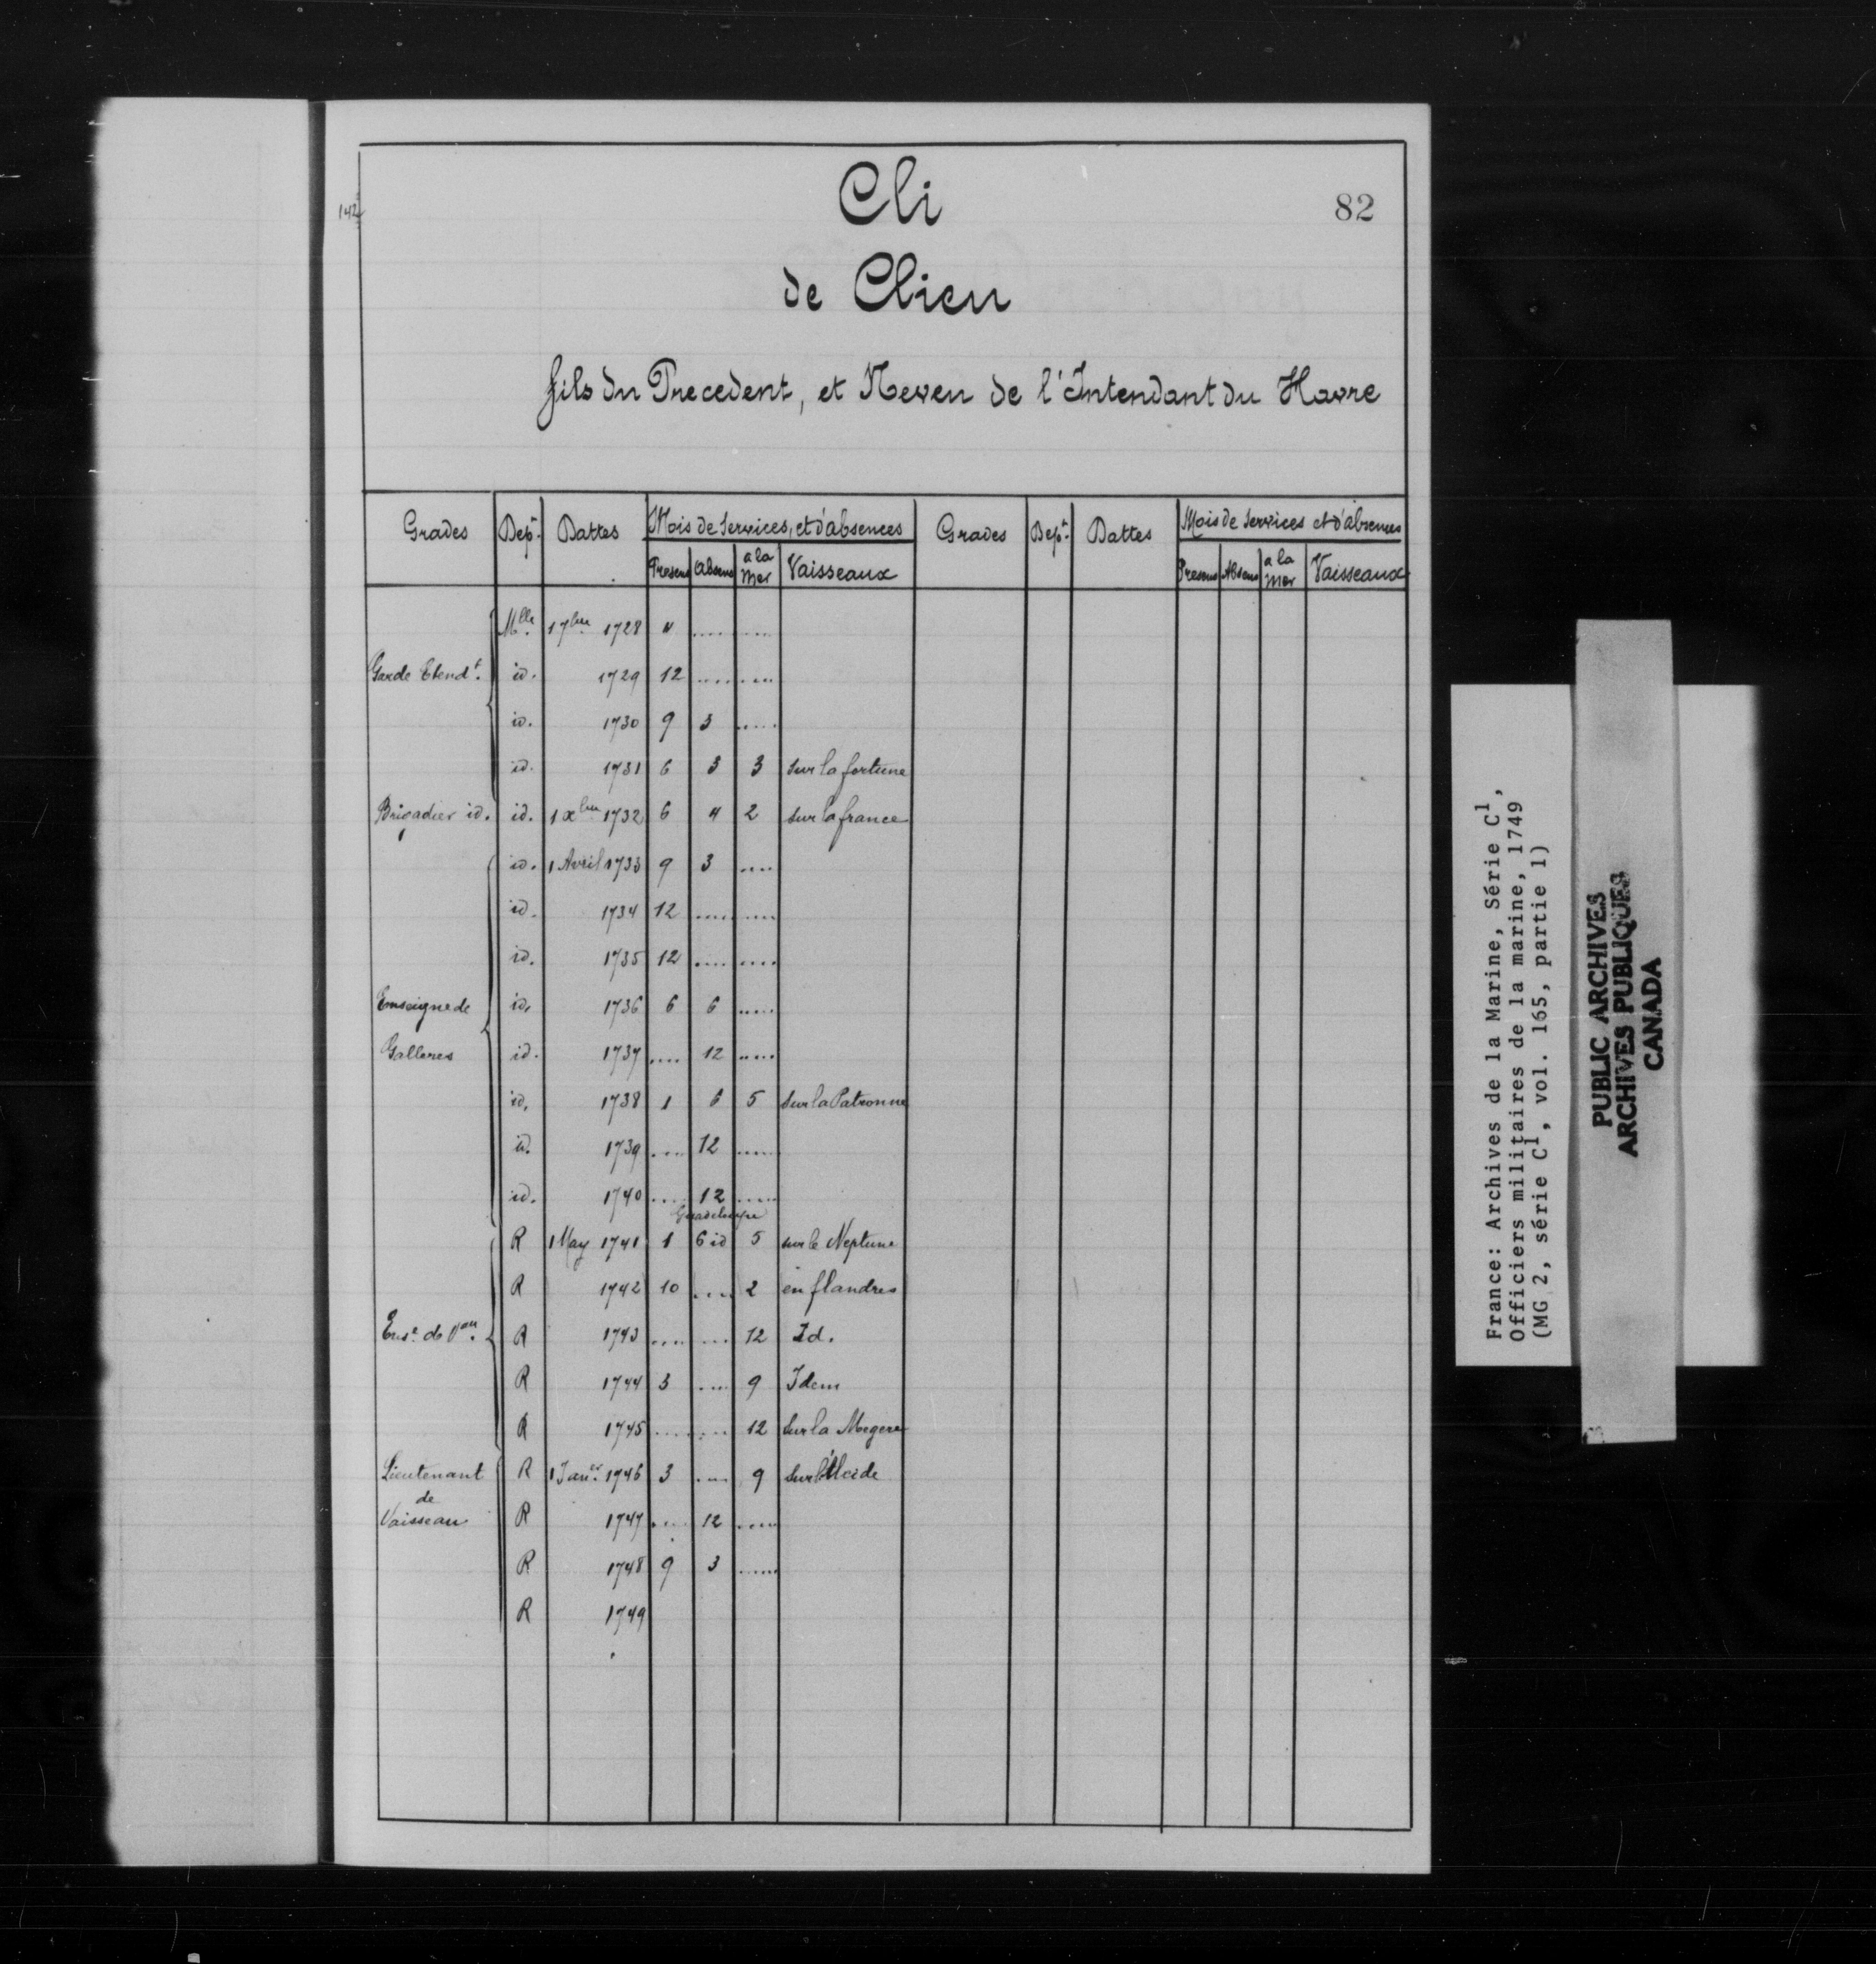 142
Cli
82
de Clieu
fils du Precedent, et Neveu de l'Intendant du Havre
Grades Depr. Dattes Mois de Services, et d'absences Grades Depr. Dattes Mois de Services et d'absences
Presens Absens a la Mer Vaisseaux Presens Absens a la Mer Vaisseaux
Mlle. 1 7bre 1728 4 .... ....
Garde Etendt. id. 1729 12 .... ....
id. 1730 9 3 ....
id. 1731 6 3 3 Sur la fortune
Brigadier id. id. 1 Xbre 1732 6 4 2 sur la france
id. 1 Avril 1733 9 3 ....
id. 1734 12 .... ....
id. 1735 12 .... ....
Enseigne de id. 1736 6 6 ....
Galleres id. 1737 .... 12 ....
id. 1738 1 6 5 Sur la Patronne
id. 1739 .... 12 ....
id. 1740 .... 12 ....
Guadeloupe
R 1 May 1741 1 6 id 5 sur le Neptune
R 1742 10 .... 2 en flandres
Ense. de Vau. R 1743 .... .... 12 Id.
R 1744 3 .... 9 Idem
R 1745 .... .... 12 Sur la Megere
Lieutenant R 1 Janer. 1746 3 .... 9 Sur l'Alcide
de
Vaisseau R 1747 .... 12 ....
R 1748 9 3 ....
R 1749
France: Archives de la Marine, Série C1,
Officiers militaires de la marine, 1749
(MG 2, série C1, vol. 165, partie 1)
PUBLIC ARCHIVES
ARCHIVES PUBLIQUES
CANADA